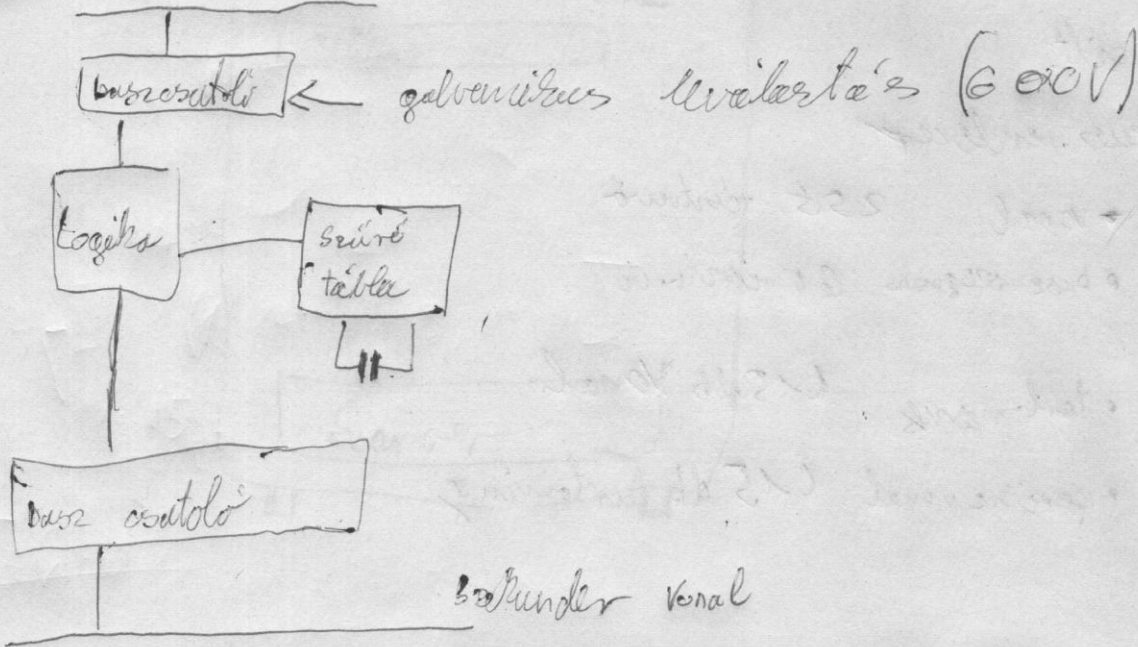 buszcsatoló
galvanikus leválasztás (600V)
Logika
szűrő
tábla
busz csatoló
szekunder vonal